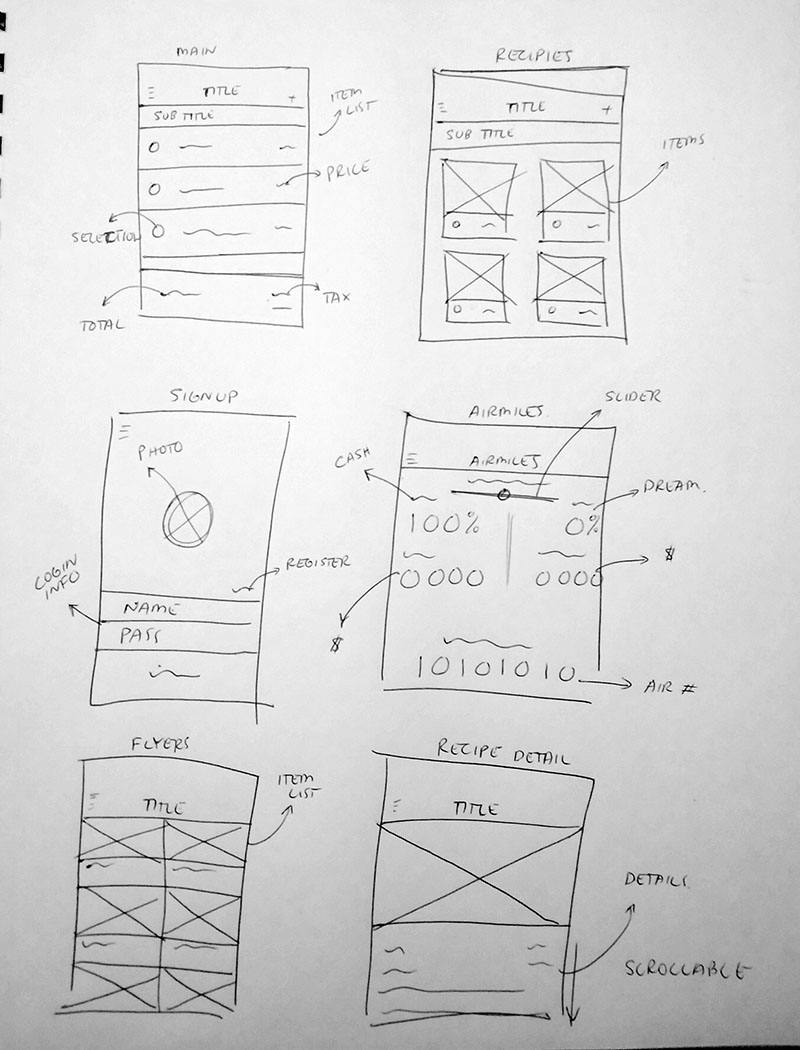 MAIN
TITLE
+
SUB TITLE
ITEM
LIST
PRICE
SELECTION
TOTAL
TAX
RECIPIES
TITLE
+
SUB TITLE
ITEMS
SIGNUP
PHOTO
REGISTER
LOGIN
INFO
NAME
PASS
AIRMILES
SLIDER
AIRMILES
CASH
DREAM.
100%
0%
0000
0000
$
$
10101010
AIR #
FLYERS
TITLE
ITEM
LIST
RECIPE DETAIL
TITLE
DETAILS
SCROLLABLE